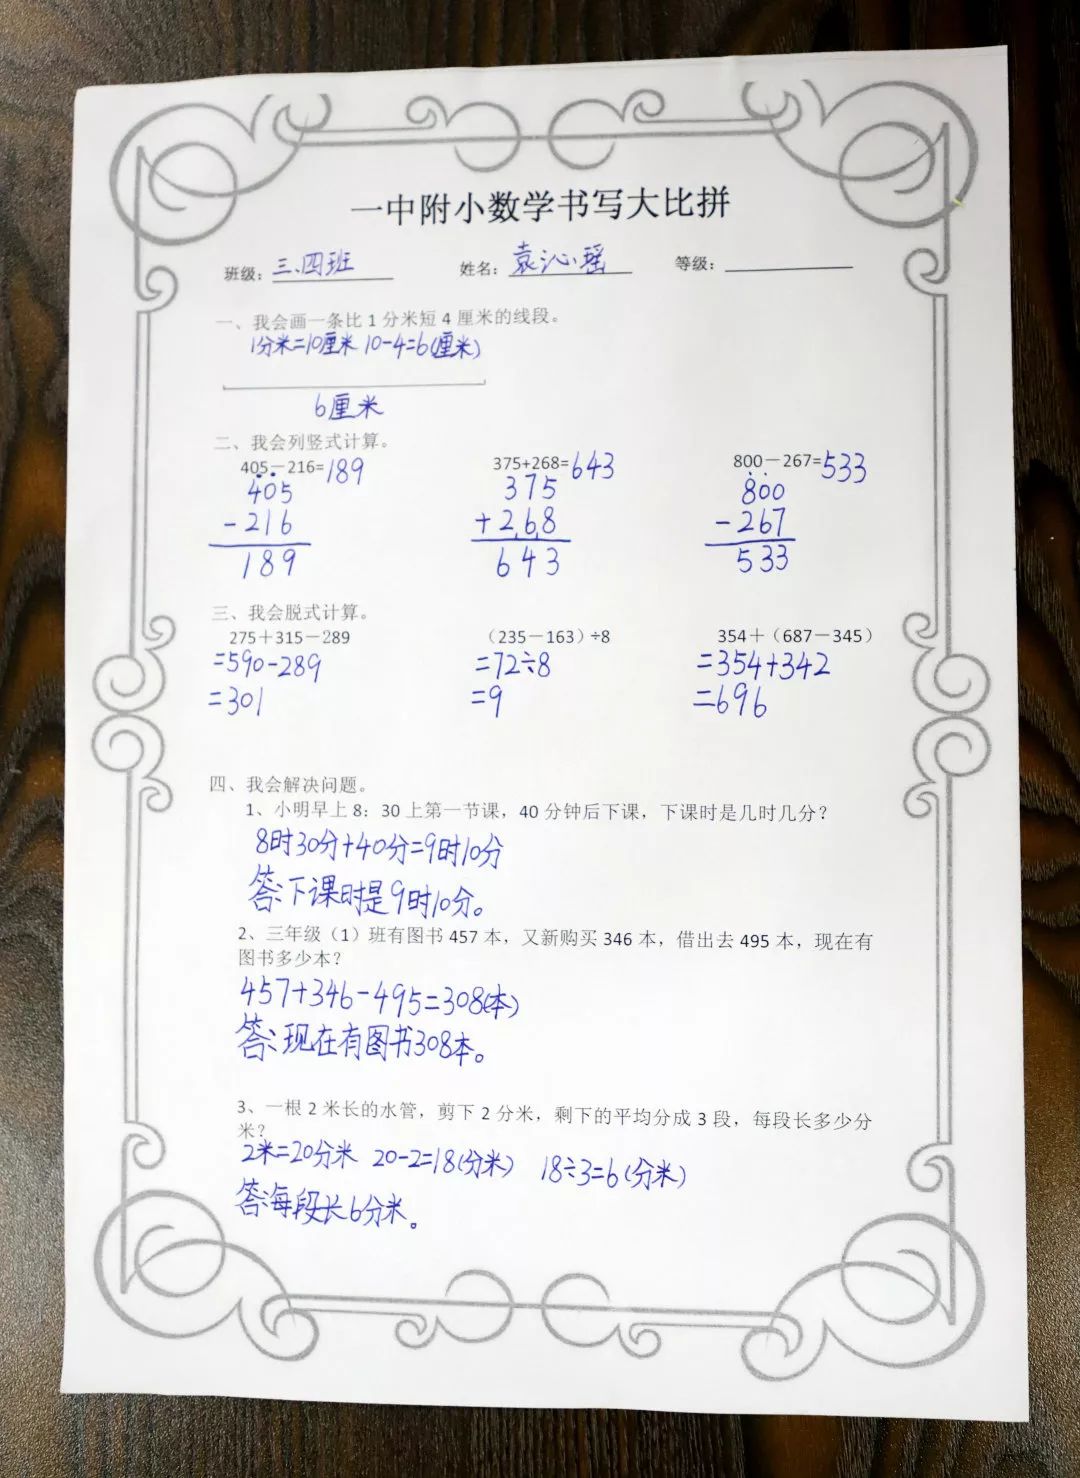 一中附小数学书写大比拼
班级：三、四班 姓名：袁沁瑶 等级：
一、我会画一条比1分米短4厘米的线段。
1分米=10厘米 10-4=6(厘米)
6厘米
二、我会列竖式计算。
405－216=189 375+268=643 800－267=533
405 375 800
-216 +268 -267
189 643 533
三、我会脱式计算。
275＋315－289 （235－163）÷8 354＋（687－345）
=590-289 =72÷8 =354+342
=301 =9 =696
四、我会解决问题。
1、小明早上8：30上第一节课，40分钟后下课，下课时是几时几分？
8时30分+40分=9时10分
答:下课时是9时10分。
2、三年级（1）班有图书457本，又新购买346本，借出去495本，现在有
图书多少本？
457+346-495=308(本)
答:现在有图书308本。
3、一根2米长的水管，剪下2分米，剩下的平均分成3段，每段长多少分
米？
2米=20分米 20-2=18(分米) 18÷3=6(分米)
答:每段长6分米。